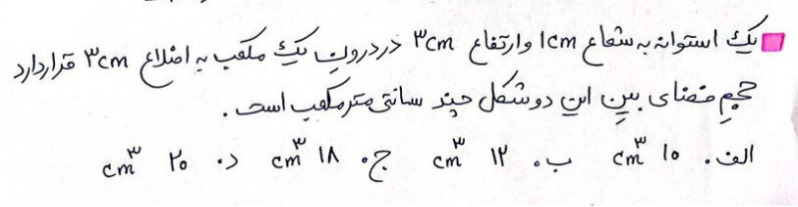 یک استوانه به شعاع ۱cm و ارتفاع ۳cm در درون یک مکعب به اضلاع ۳cm قرار دارد
حجم فضای بین این دو شکل چند سانتی متر مکعب است.
الف. ۱۰ cm³ ب. ۱۲ cm³ ج. ۱۸ cm³ د. ۲۰ cm³